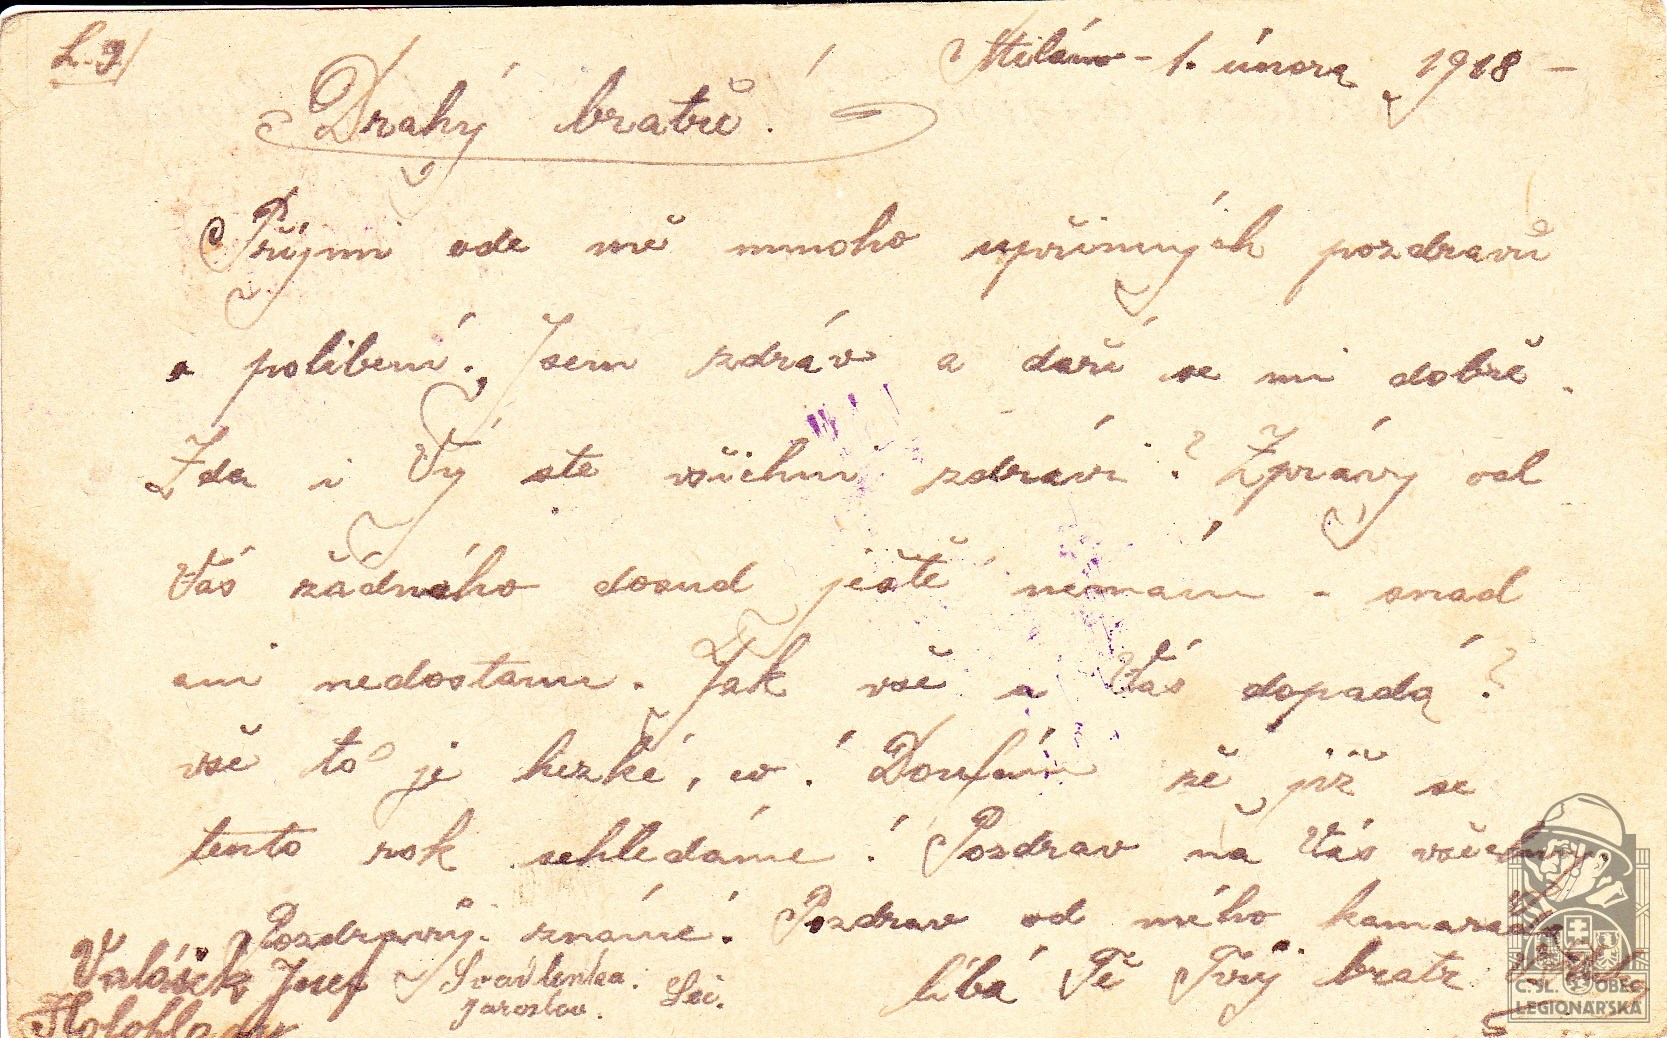 L. 9/
Miláno - 1. února 1918 -
Drahý bratře!
Přijmi ode mě mnoho upřimných pozdravů
a políbení. Jsem zdráv a daří se mi dobře.
Zda i Vý ste všichni zdrávi? Zprávy od
Vás žádného dosud ještě nemám - snad
ani nedostanu. Jak vše u Vás dopadá?
vše to je hezké, Doufám že již se
tento rok sehledáme! Pozdrav na Vás všechny.
Pozdravuj známé! Pozdrav od mého kamaráda
Valášek Josef Svadlenka Seč. líbá Tě Tvůj bratr
Jaroslav.
Holohlavy
Č. SL. OBEC
LEGIONÁŘSKÁ